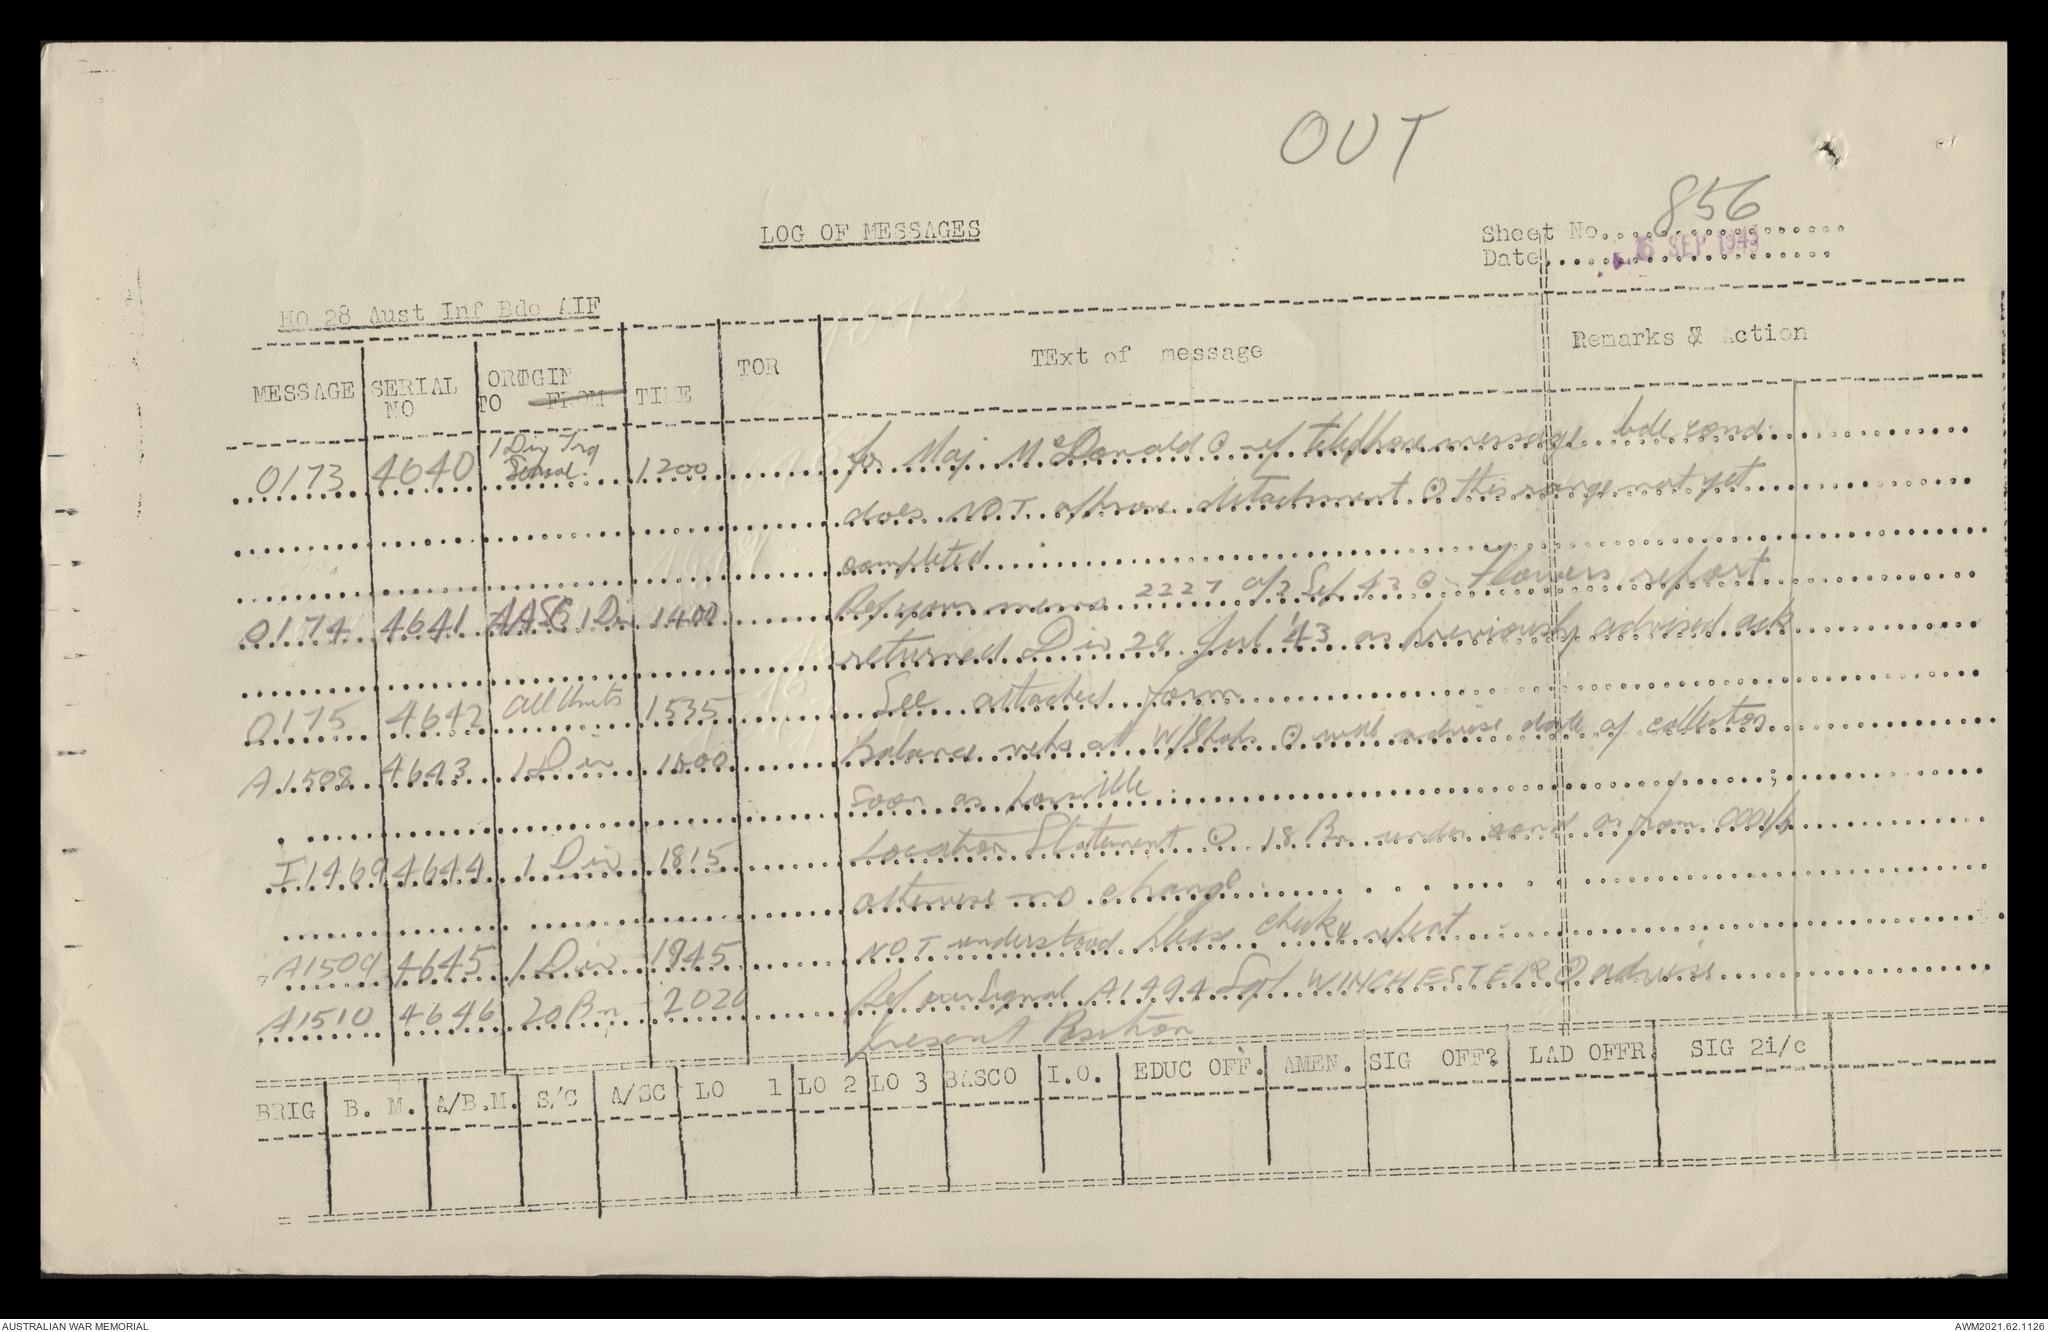 OUT
LOG OF MESSAGES
Sheet No. 856
Date SEP 1943
HQ 28 Aust Inf Bde AIF
MESSAGE SERIAL NO ORIGIN TO FROM TIME TOR TExt of message Remarks & Action
0173 4640 1 Div Trg School 1200 for Maj McDonald ⊙ ref telephone message bde comd
does NOT approve detachment ⊙ this range not yet
completed
0174 4641 AASC 1 Div 1400 Ref your memo 2227 of 2 Sep 43 ⊙ Flowers report
returned Div 28 Jul '43 as previously advised ack
0175 4642 All Units 1535 See attached form
A1508 4643 1 Div 1800 Balance vehs at W/Shops ⊙ will advise date of collection
soon as possible
I1469 4644 1 Div 1815 Location Statement ⊙ 18 Bn under comd as from 0001/6
otherwise no change
A1509 4645 1 Div 1945 NOT understood please check & repeat
A1510 4646 20 Bn 2020 Ref our Signal A1494 Sgt WINCHESTER ⊙ advise
present Position
BRIG B. M. A/B.M. S/C A/SC LO 1 LO 2 LO 3 BASCO I.O. EDUC OFF. AMEN. SIG OFF? LAD OFFR. SIG 2i/c
AUSTRALIAN WAR MEMORIAL
AWM2021.62.1126